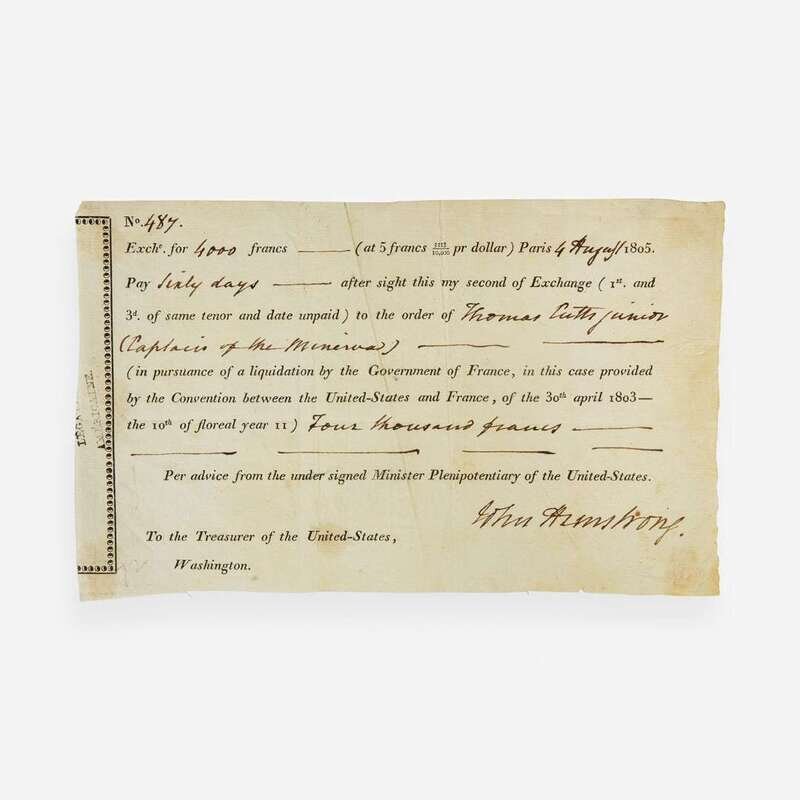 No. 487.
Exche. for 4000 francs (at 5 francs 3333/10,000 pr dollar) Paris 4 August 1805.
Pay Sixty days after sight this my second of Exchange (1st. and
3d. of same tenor and date unpaid) to the order of Thomas Cutts junior
(Captain of the Minerva)
(in pursuance of a liquidation by the Government of France, in this case provided
by the Convention between the United-States and France, of the 30th april 1803—
the 10th of floreal year 11) Four thousand francs
Per advice from the under signed Minister Plenipotentiary of the United-States.
John Armstrong.
To the Treasurer of the United-States,
Washington.